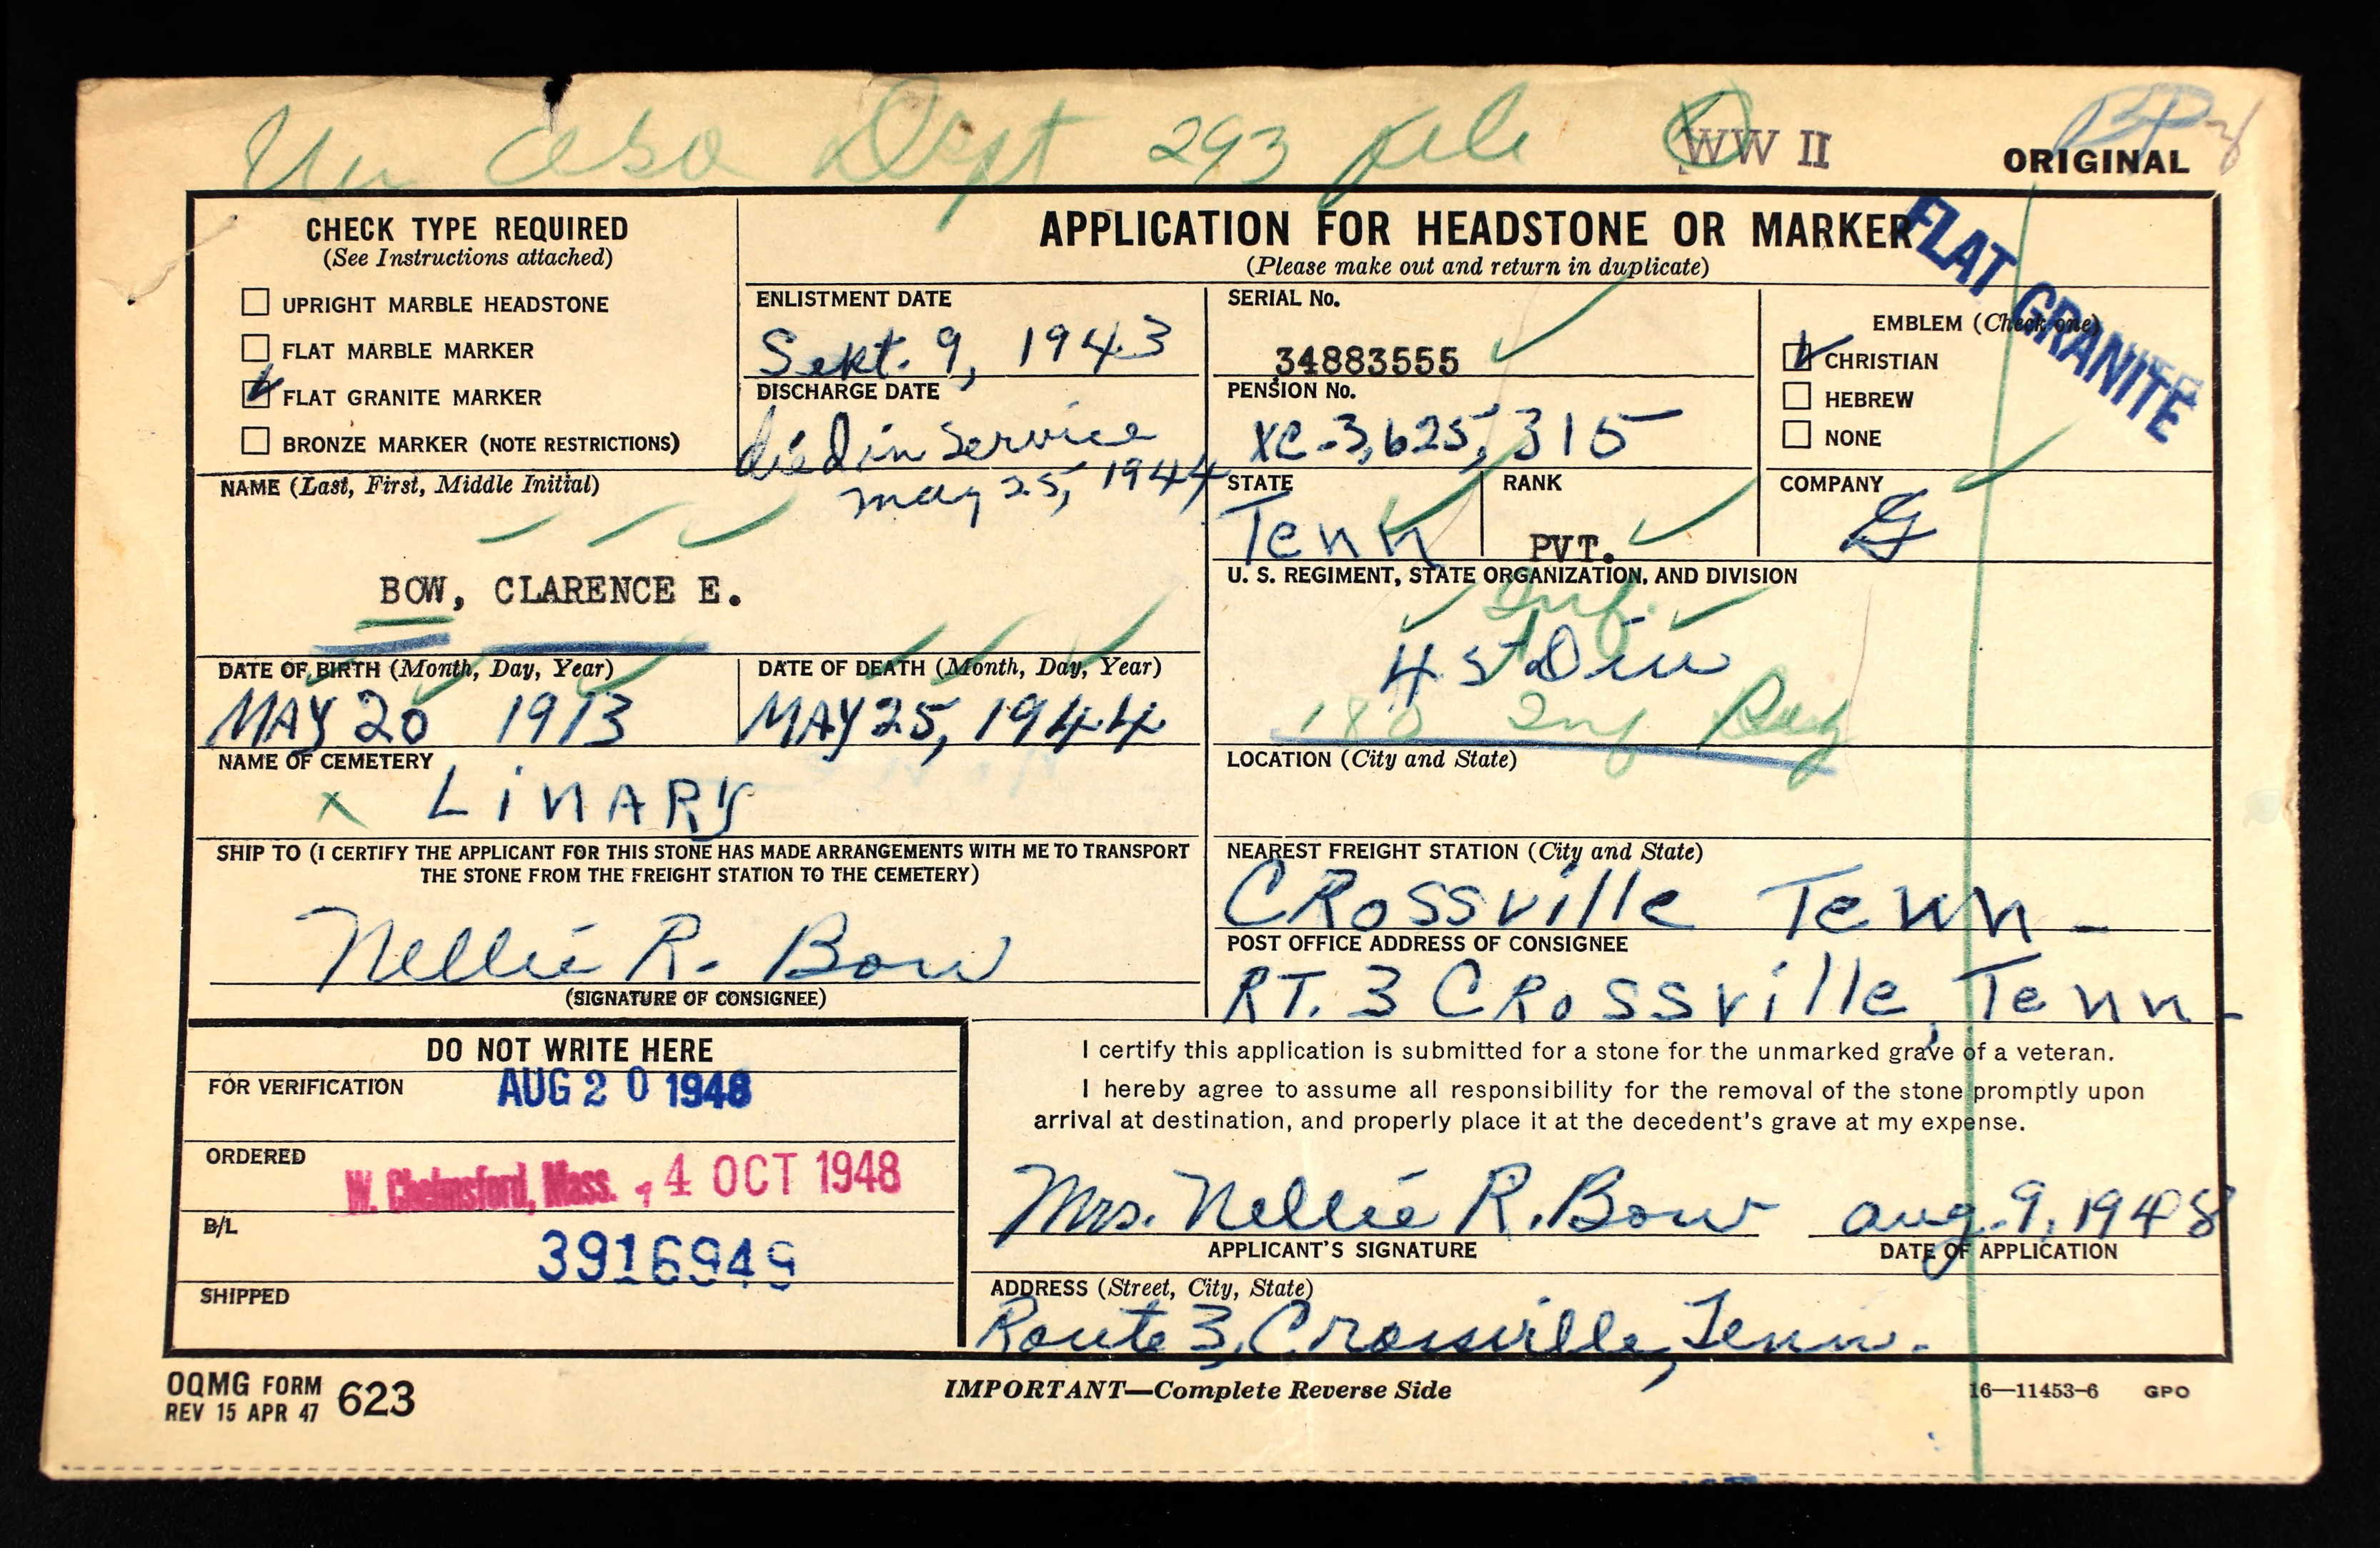 Dept 293 file
WW II
ORIGINAL
CHECK TYPE REQUIRED
(See Instructions attached)
UPRIGHT MARBLE HEADSTONE
FLAT MARBLE MARKER
FLAT GRANITE MARKER
BRONZE MARKER (NOTE RESTRICTIONS)
APPLICATION FOR HEADSTONE OR MARKER
(Please make out and return in duplicate)
FLAT GRANITE
ENLISTMENT DATE
Sept. 9, 1943
DISCHARGE DATE
died in service
may 25, 1944
SERIAL No.
34883555
PENSION No.
XC-3,625,315
EMBLEM (Check one)
CHRISTIAN
HEBREW
NONE
NAME (Last, First, Middle Initial)
BOW, CLARENCE E.
STATE
Tenn
RANK
PVT.
COMPANY
G
U. S. REGIMENT, STATE ORGANIZATION, AND DIVISION
Inf.
45 Div
180 Inf Reg
DATE OF BIRTH (Month, Day, Year)
MAY 20 1913
DATE OF DEATH (Month, Day, Year)
MAY 25, 1944
NAME OF CEMETERY
x LiNARY
LOCATION (City and State)
SHIP TO (I CERTIFY THE APPLICANT FOR THIS STONE HAS MADE ARRANGEMENTS WITH ME TO TRANSPORT
THE STONE FROM THE FREIGHT STATION TO THE CEMETERY)
Nellie R. Bow
(SIGNATURE OF CONSIGNEE)
NEAREST FREIGHT STATION (City and State)
CRossville Tenn-
POST OFFICE ADDRESS OF CONSIGNEE
RT. 3 CRossville, Tenn-
DO NOT WRITE HERE
FOR VERIFICATION
AUG 20 1948
ORDERED
W. Chelmsford, Mass. , 4 OCT 1948
B/L
3916949
SHIPPED
I certify this application is submitted for a stone for the unmarked grave of a veteran.
I hereby agree to assume all responsibility for the removal of the stone promptly upon
arrival at destination, and properly place it at the decedent's grave at my expense.
Mrs. Nellie R. Bow aug. 9, 1948
APPLICANT'S SIGNATURE
DATE OF APPLICATION
ADDRESS (Street, City, State)
Route 3, Crossville, Tenn.
OQMG FORM 623
REV 15 APR 47
IMPORTANT—Complete Reverse Side
16—11453-6 GPO